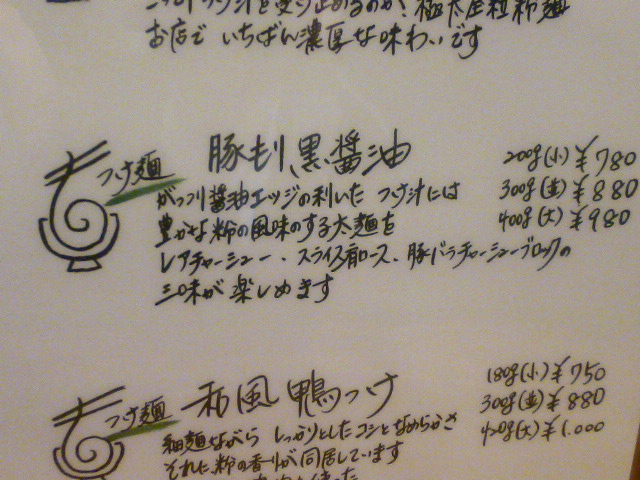 お店で いちばん濃厚な味わいです
つけ麺
豚もり 黒醤油
200g(小) ¥780
300g(並) ¥880
400g(大) ¥980
がっつり醤油エッジの利いた つけ汁には
豊かな粉の風味のする太麺を
レアチャーシュー、スライス肩ロース、豚バラチャーシューブロックの
三味が楽しめます
つけ麺
和風 鴨つけ
180g(小) ¥750
300g(並) ¥880
420g(大) ¥1.000
細麺ながら しっかりとしたコシとなめらかさ
それに粉の香りが同居しています